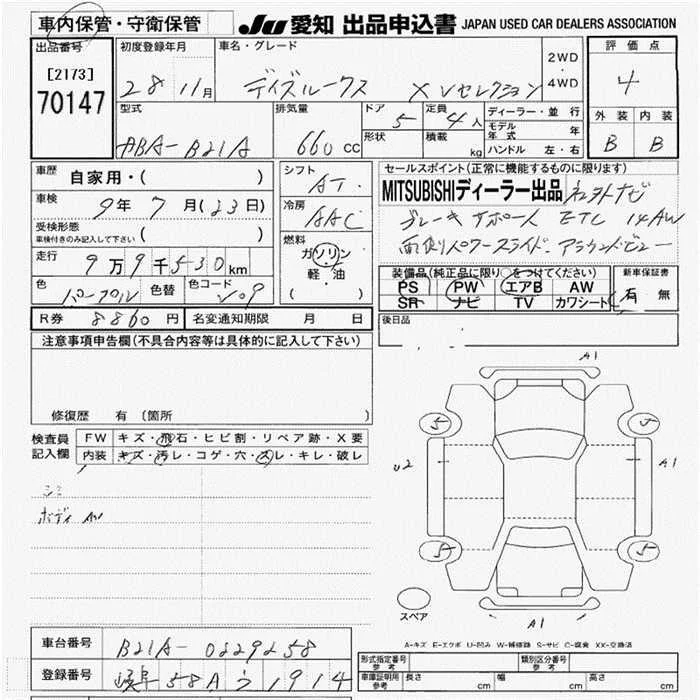 車内保管・守衛保管
JU 愛知 出品申込書 JAPAN USED CAR DEALERS ASSOCIATION
出品番号
[2173]
70147
初度登録年月
28 11月
車名・グレード
デイズルークス X Vセレクション
2WD
・
4WD
評価点
4
外装 内装
B B
型式
ABA-B21A
排気量
660 cc
ドア
5
形状
定員
4人
積載
kg
ディーラー・並行
モデル年式 年
ハンドル 左・右
車歴
自家用・( )
車検
9年7月(23日)
受検形態
車検付きのみ記入して下さい ( )
走行
9万9千530km
色
パープル
色替
色コード
シフト
AT
冷房
AAC
燃料
ガソリン
軽・油
( )
セールスポイント(正常に機能するものに限ります)
MITSUBISHIディーラー出品 ナビ
ブレーキサポート ETC 14AW
両側パワースライド アラウンドビュー
装備品(純正品に限り○をつけてください)
PS PW エアB AW
SR ナビ TV カワシート
新車保証書
有 無
R券 8860円 名変通知期限 月 日
後日品
注意事項申告欄(不具合内容等は具体的に記入して下さい)
修復歴 有〔箇所 〕
検査員
記入欄
FW キズ・飛石・ヒビ割・リペア跡・X要
内装 キズ・汚レ・コゲ・穴・スレ・キレ・破レ
シミ
ボディ AW
A1
5
5
U2
A1
5
5
スペア
A1
A-キズ E-エクボ U-凹み W-補修跡 S-サビ C-腐食 XX-交換済
車台番号
B21A-0229258
登録番号
岐阜 58A う 1914
形式指定番号
参考
類別区分番号
参考
車庫証明用
参考
長さ cm 幅 cm 高さ cm